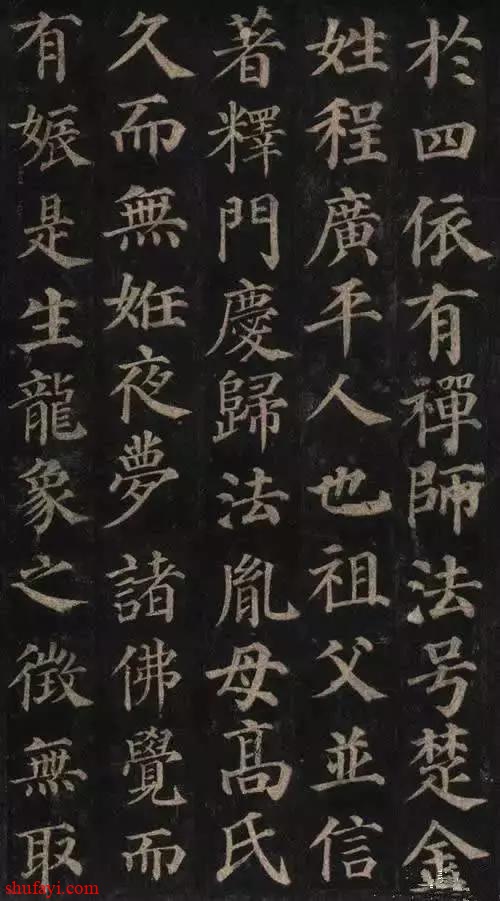 於四依有禪師法号楚金
姓程廣平人也祖父並信
著釋門慶歸法胤母髙氏
久而無姙夜夢諸佛覺而
有娠是生龍象之徵無取
shufayi.com